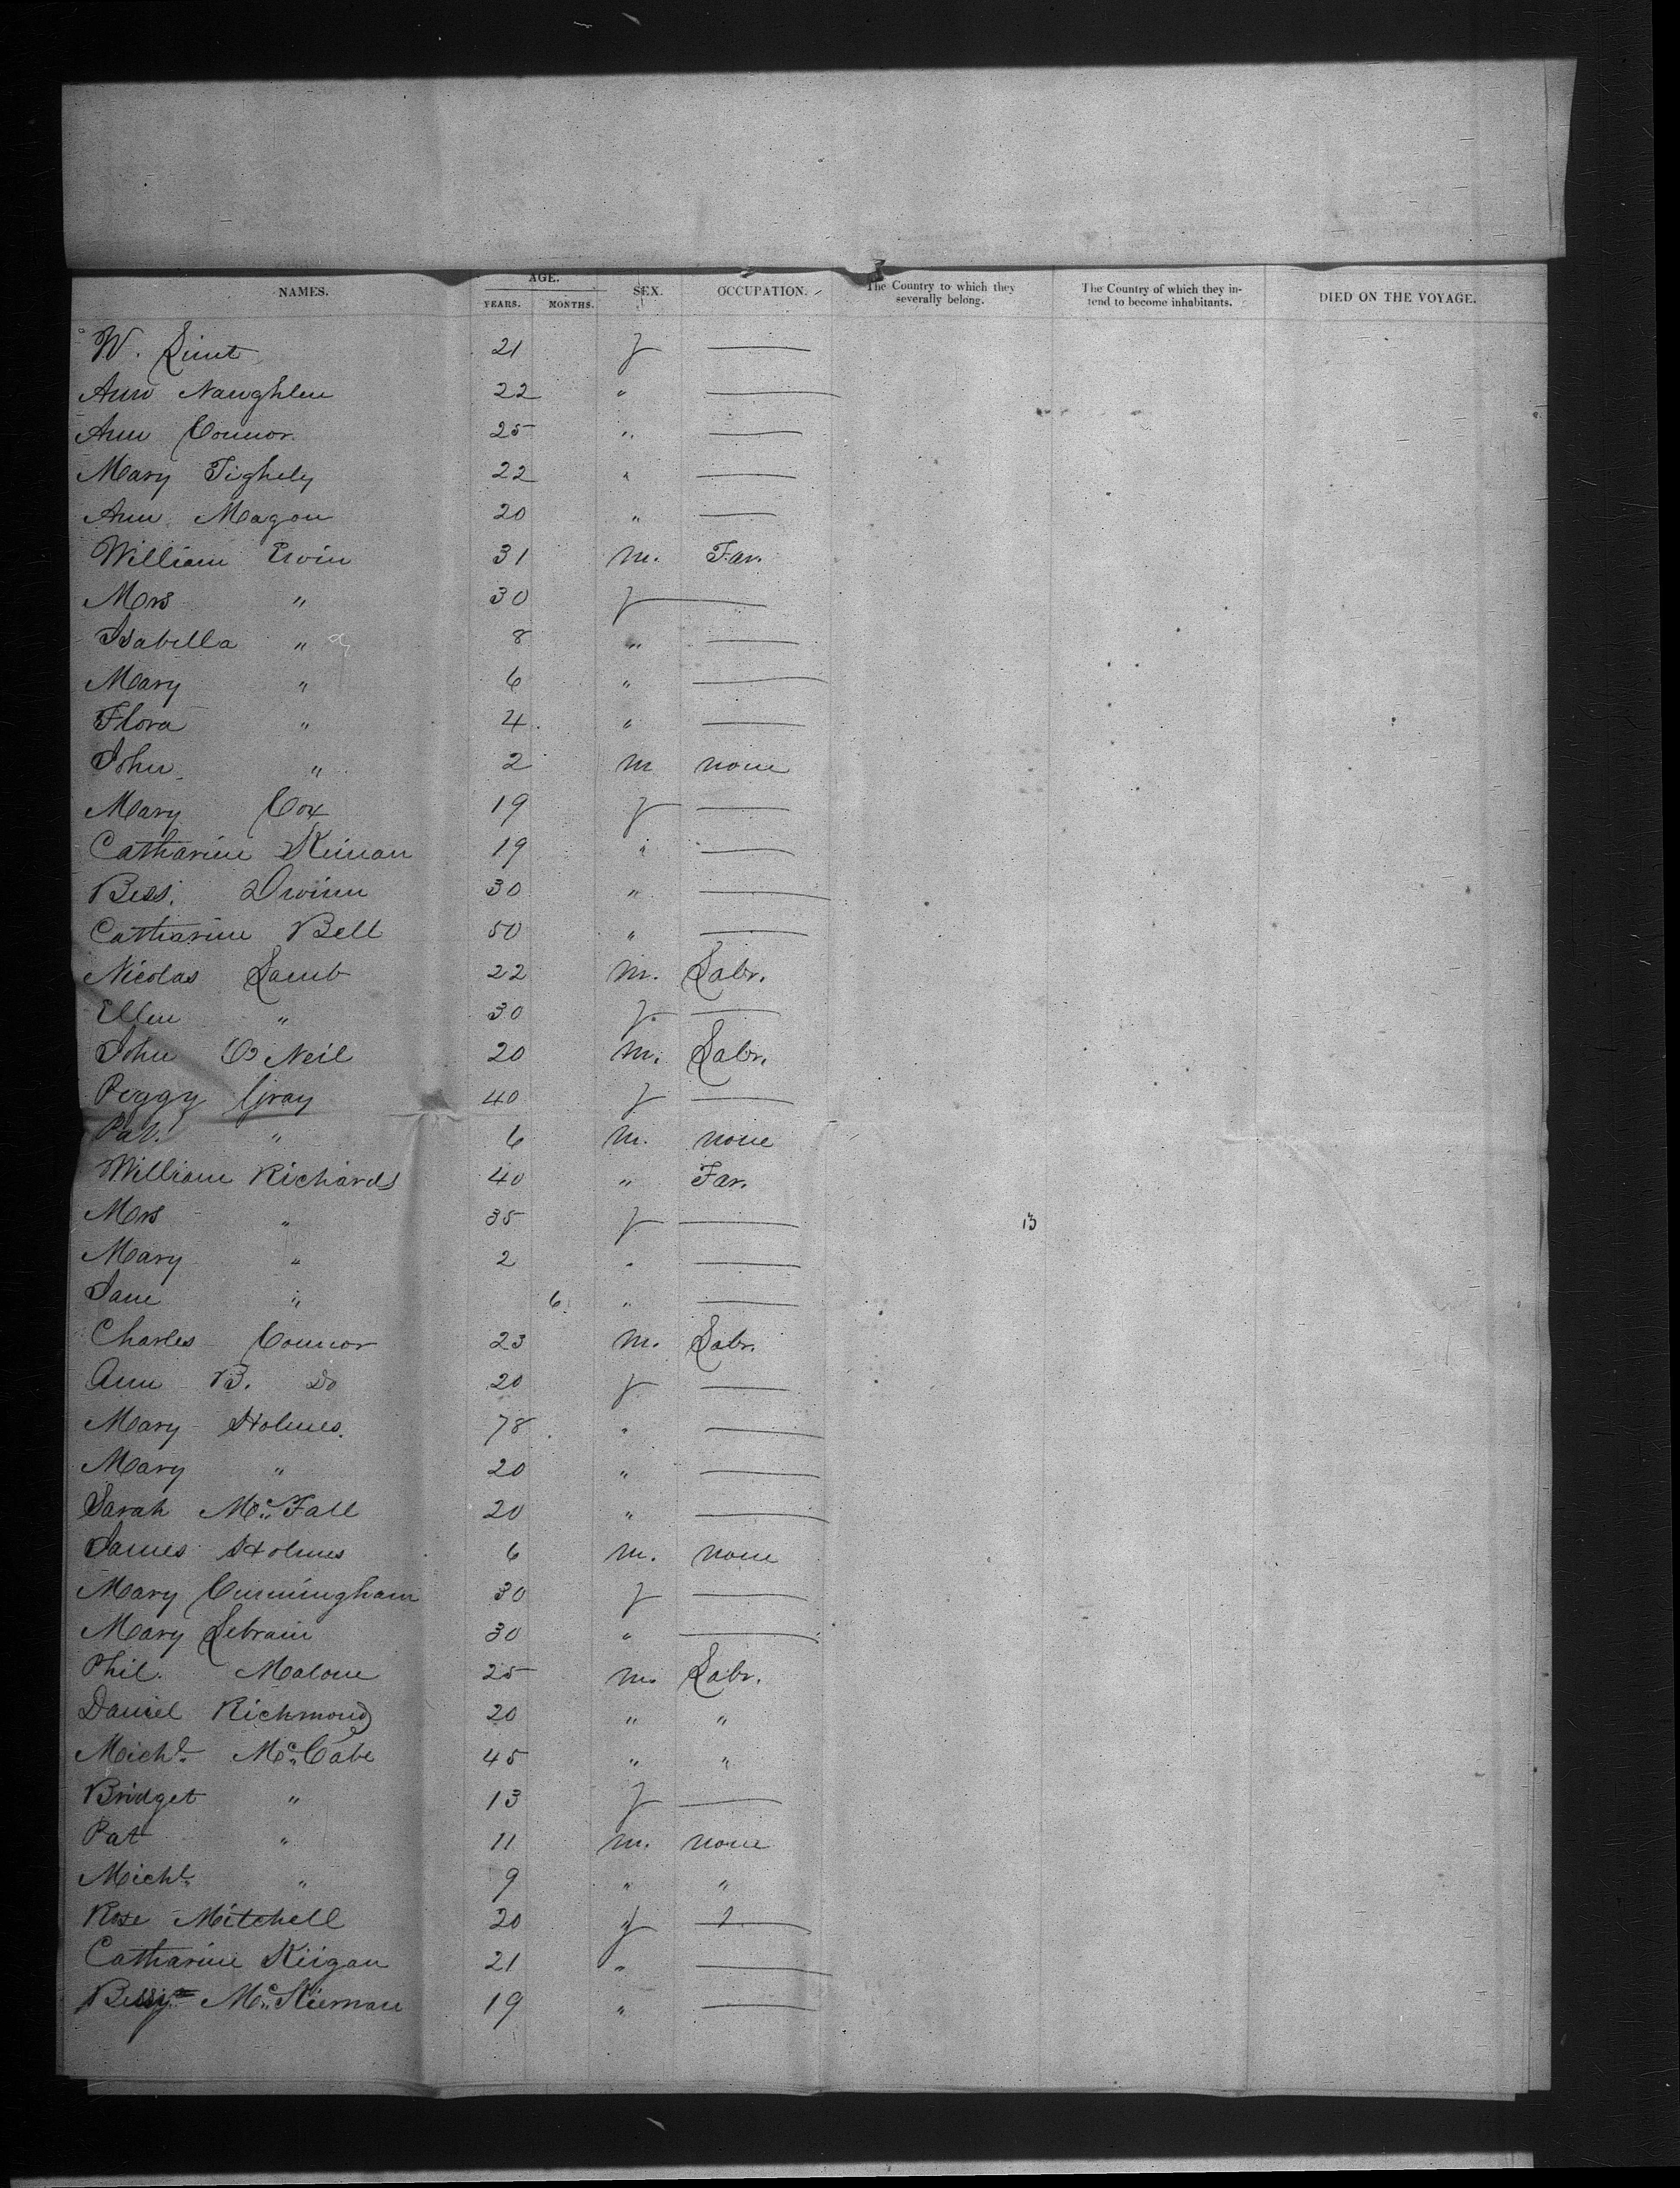 NAMES. AGE. YEARS. MONTHS. SEX. OCCUPATION. The Country to which they severally belong. The Country of which they intend to become inhabitants. DIED ON THE VOYAGE.
W. 21 f —
Ann Naughlen 22 " —
Ann Connor. 25 " —
Mary Tighely 22 " —
Ann Magon 20 " —
William Erwin 31 m. Far.
Mrs " 30 f —
Isabella " 8 " —
Mary " 6 " —
Flora " 4 " —
John " 2 m none
Mary Cox 19 f —
Catharine Kinan 19 " —
Bess. 30 " —
Catharine Bell 50 " —
Nicolas Lamb 22 m. Labr.
Ellen " 30 f. —
John O'Neil 20 m. Labr.
Peggy Gray 40 f —
Pat. " 6 m. none
William Richards 40 " Far.
Mrs " 35 f — 13
Mary " 2 " —
Jane " 6 " —
Charles Connor 23 m. Labr.
Ann B. Do 20 f —
Mary Holmes. 78 " —
Mary " 20 " —
Sarah Mc Fall 20 " —
James Holmes 6 m. none
Mary Cunningham 30 f —
Mary Lebrain 30 " —
Phil. Malone 25 m. Labr.
Daniel Richmond 20 " "
Michl. McCabe 45 " "
Bridget " 13 f —
Pat " 11 m. none
Michl. " 9 " "
Rose Mitchell 20 f —
Catharine Keigan 21 " —
Bessy McKiernan 19 " —